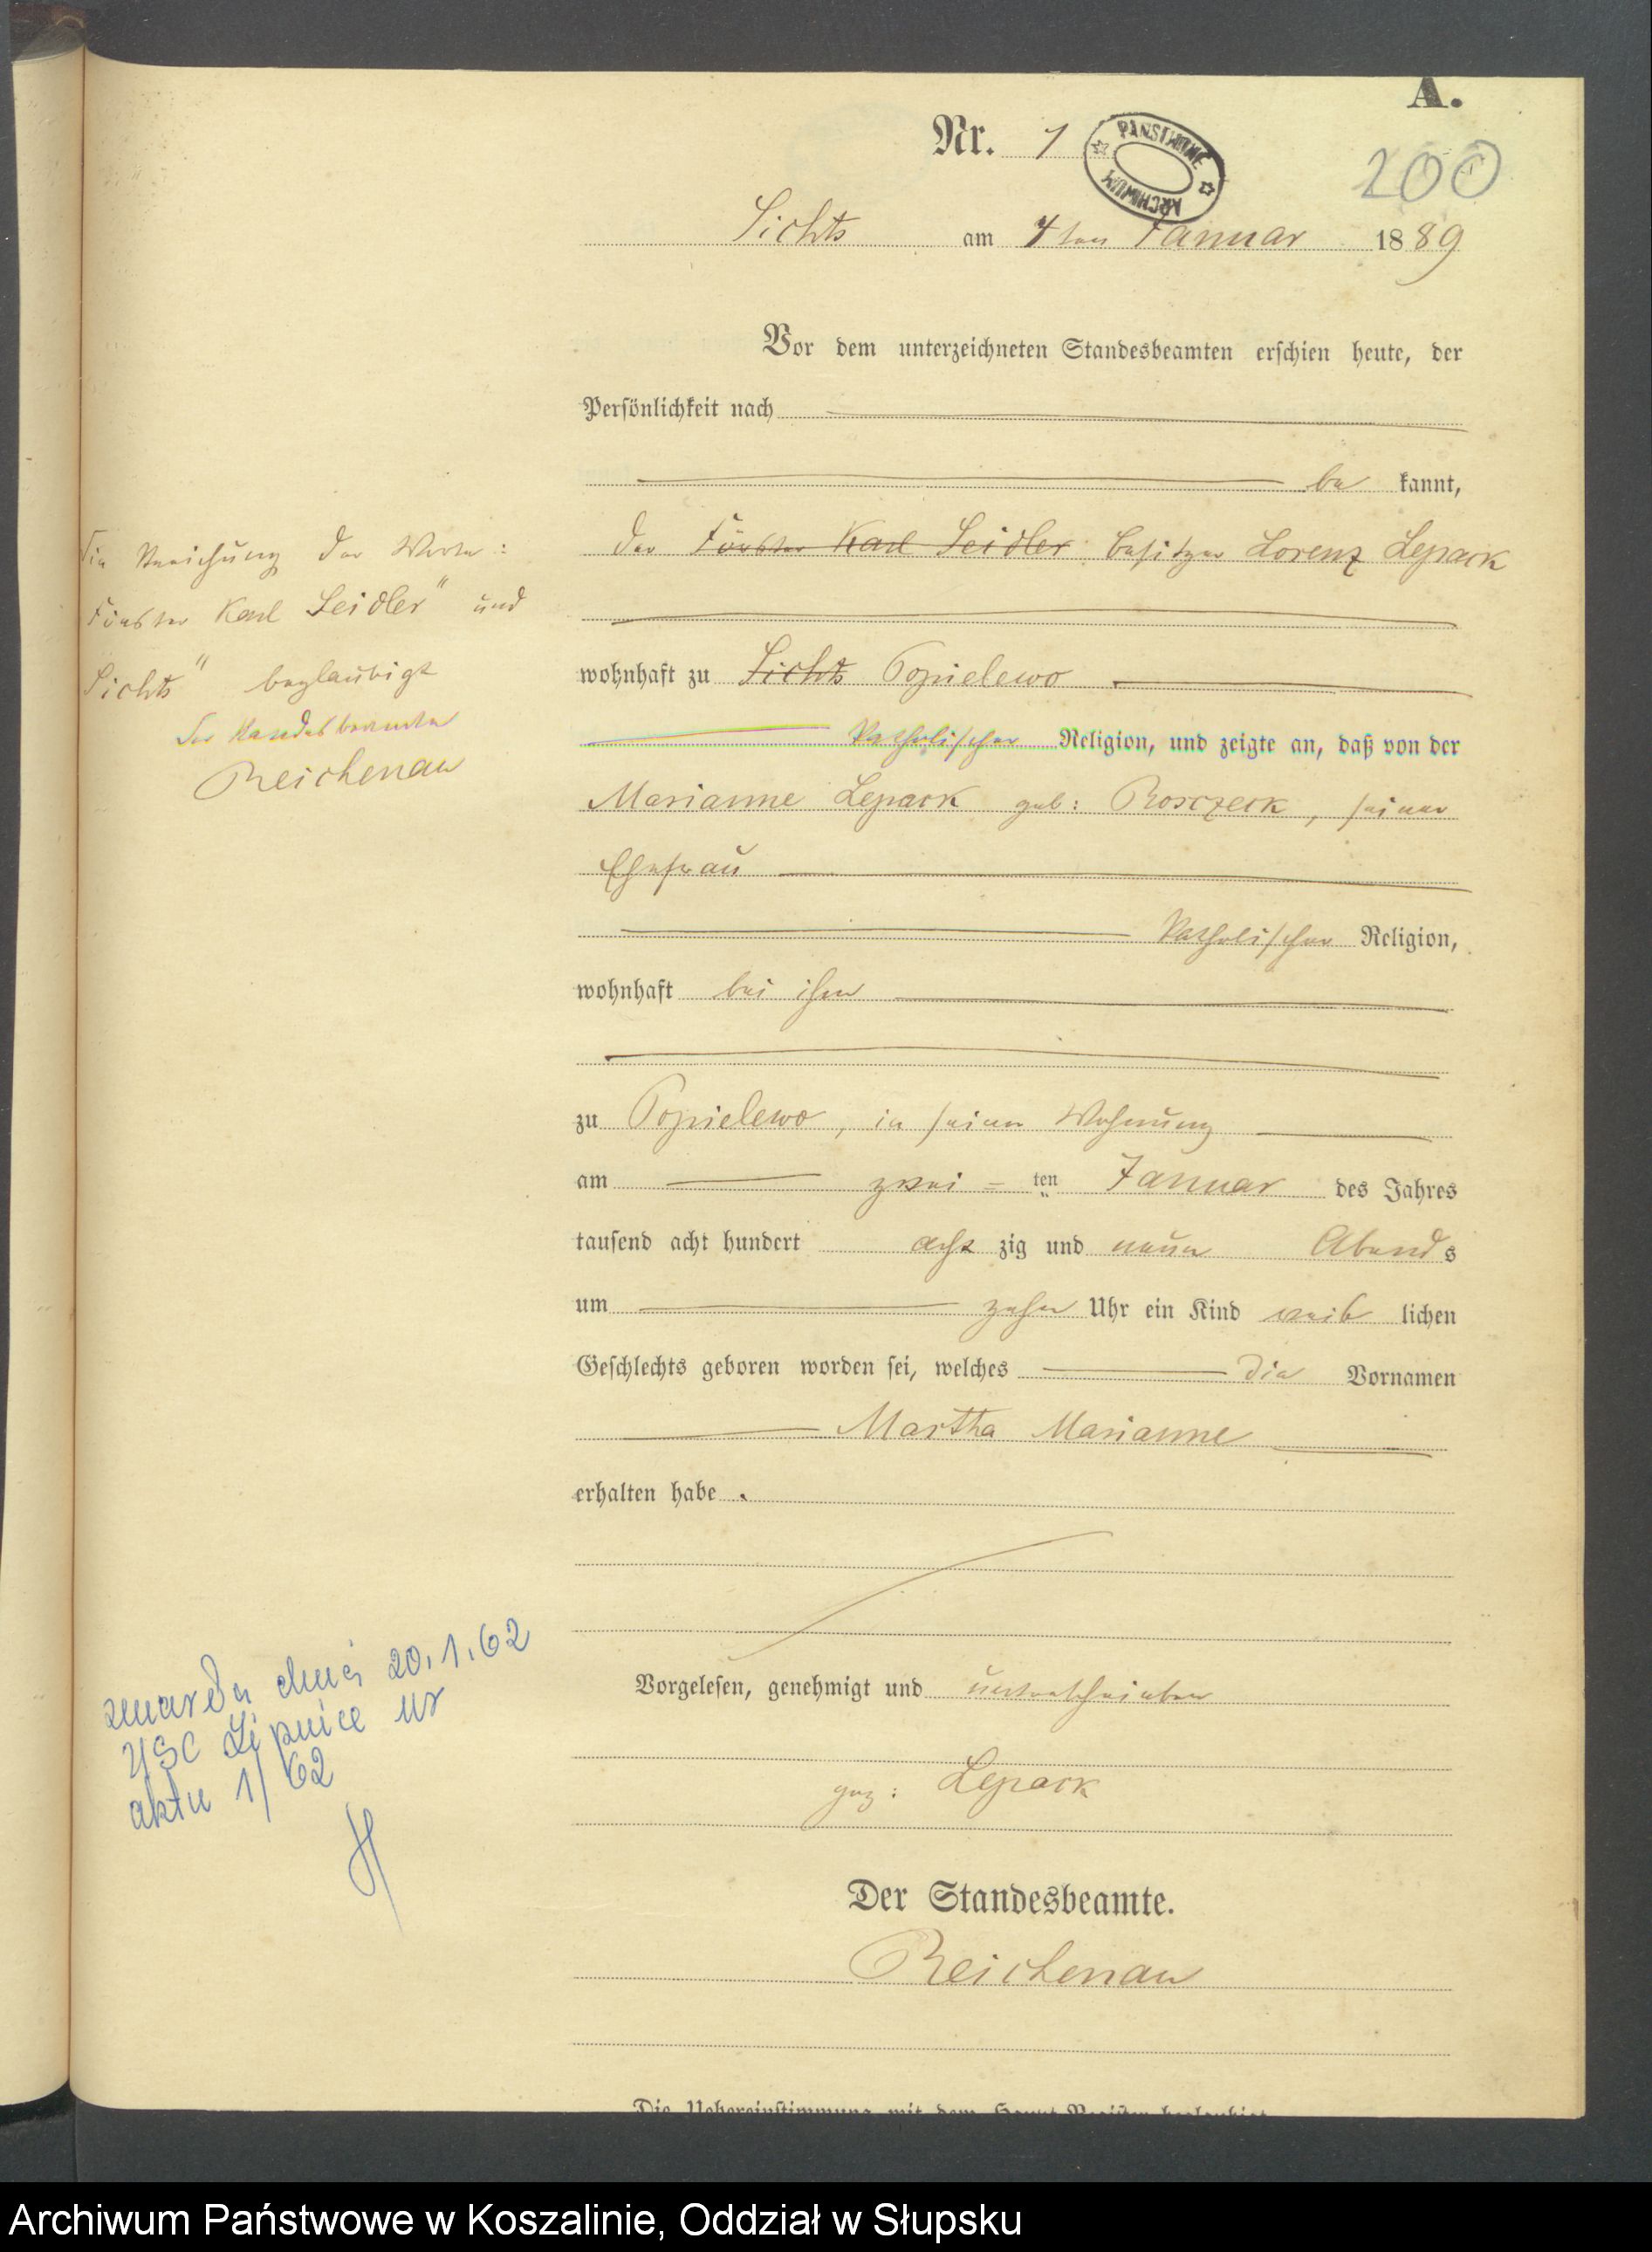 A.
Nr. 1
PAŃSTWOWE ARCHIWUM
200
Lichts am 4ten Januar 1889
Vor dem unterzeichneten Standesbeamten erschien heute, der
Persönlichkeit nach
be kannt,
der Förster Karl Seidler Besitzer Lorenz Lepack
wohnhaft zu Lichts Popielewo
katholischer Religion, und zeigte an, daß von der
Marianne Lepack geb: Rosczeck, seiner
Ehefrau
katholischer Religion,
wohnhaft bei ihm
zu Popielewo, in seiner Wohnung
am zwei=ten Januar des Jahres
tausend acht hundert acht zig und neun Abends
um zehn Uhr ein Kind weib lichen
Geschlechts geboren worden sei, welches die Vornamen
Martha Marianne
erhalten habe.
Vorgelesen, genehmigt und unterschrieben
gez: Lepack
Der Standesbeamte.
Reichenau
Die Uebereinstimmung mit dem Haupt-Register beglaubigt
Die Streichung der Worte:
Förster Karl Seidler" und
Lichts" beglaubigt
Der Standesbeamte
Reichenau
zmarła dnia 20.1.62
USC Lipnice nr
aktu 1/62
Archiwum Państwowe w Koszalinie, Oddział w Słupsku